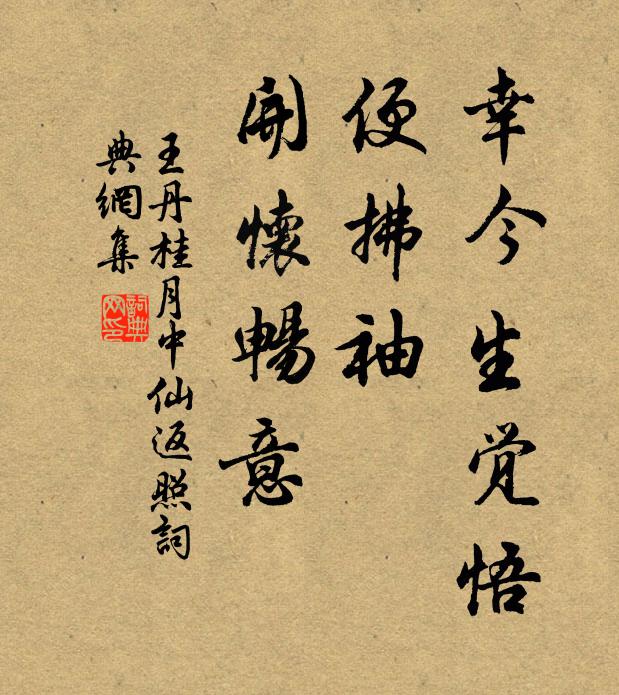 幸今生觉悟
便拂袖
開懷暢意
王丹桂月中仙返照詞
典網集
詞典
网印